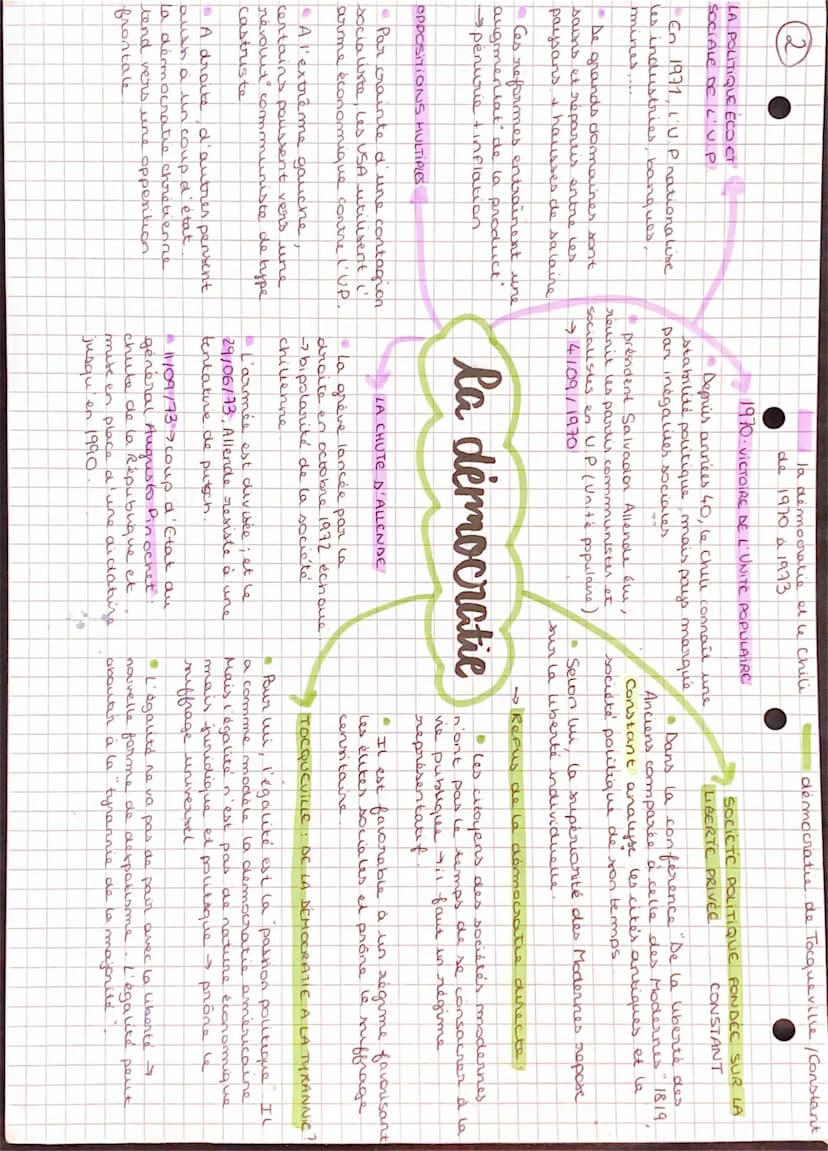 2
la démocratie et le Chili
de 1970 à 1973
démocratie de Tocqueville / Constant
LA POLITIQUE ÉCO ET
SOCIALE DE L'U.P
• En 1971, l'U.P nationalise
les industries, banques,
mines....
• De grands domaines sont
saisis et répartis entre les
paysans + hausses de salaire
• Ces reformes entraînent une
augmentat° de la product°
→ pénurie + inflation
OPPOSITIONS MULTIPLES
• Par crainte d'une contagion
socialiste, les USA utilisent l'
arme économique contre l'U.P.
• A l'extrême gauche,
certains poussent vers une
révolut° communiste de type
castriste
• A droite, d'autres pensent
aussi à un coup d'état.
la démocratie chrétienne
tend vers une opposition
frontale.
1970 : VICTOIRE DE L'UNITÉ POPULAIRE
• Depuis années 40, le Chili connaît une
stabilité politique, mais pays marqué
par inégalités sociales
• président Salvador Allende élu,
réunit les partis communistes et
socialistes en U.P (Unité populaire)
→ 4/09/1970
la démocratie
LA CHUTE D'ALLENDE
• La grève lancée par la
droite en octobre 1972 échoue
→ bipolarité de la société
chilienne
• L'armée est divisée ; et le
29/06/73, Allende resiste à une
tentative de putsch.
• 11/09/73 → coup d'Etat du
général Augusto Pinochet :
chute de la République et
mise en place d'une dictature
jusqu'en 1990.
SOCIÉTÉ POLITIQUE FONDÉE SUR LA
LIBERTÉ PRIVÉE CONSTANT
• Dans la conférence "De la liberté des
Anciens comparée à celle des Modernes" 1819,
Constant analyse les cités antiques et la
société politique de son temps.
• Selon lui, la supériorité des Modernes repose
sur la liberté individuelle.
→ Refus de la démocratie directe,
• les citoyens des sociétés modernes
n'ont pas le temps de se consacrer à la
vie publique → il faut un régime
représentatif.
• Il est favorable à un régime favorisant
les élites sociales et prône le suffrage
censitaire.
TOCQUEVILLE : DE LA DÉMOCRATIE À LA TYRANNIE ?
• Pour lui, l'égalité est la "passion politique". Il
a comme modèle la démocratie américaine
Mais l'égalité n'est pas de nature économique
mais juridique et politique → prône le
suffrage universel
• L'égalité ne va pas de pair avec la liberté →
nouvelle forme de despotisme. L'égalité peut
aboutir à la "tyrannie de la majorité".